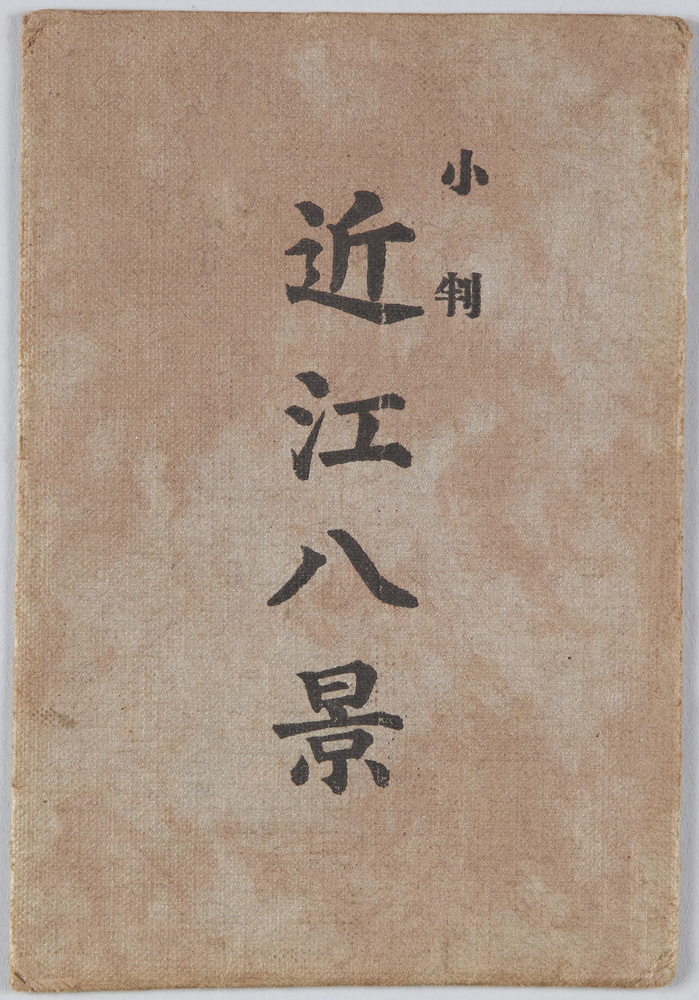 小判
近江八景